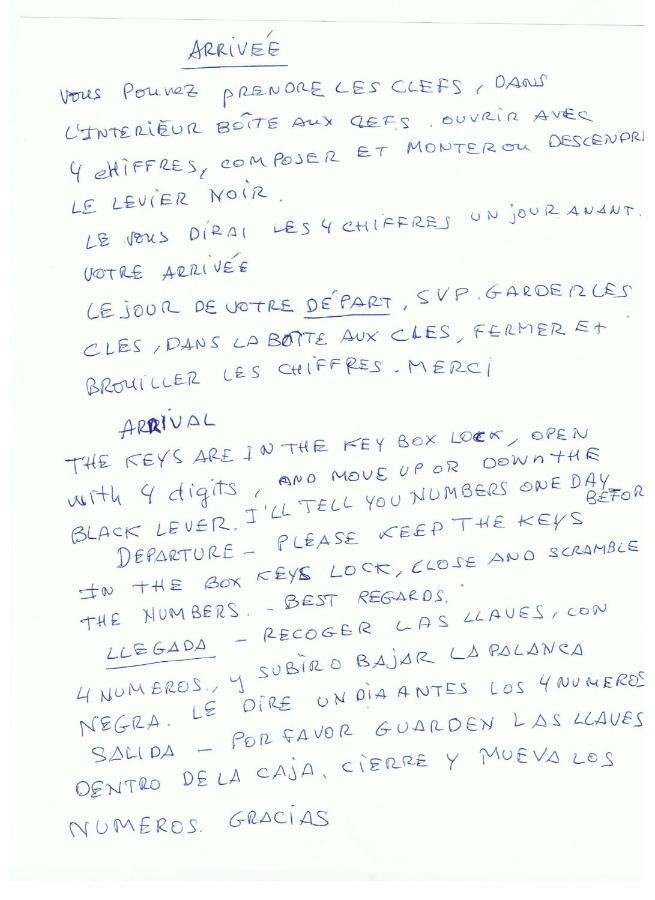 ARRIVEÉ
Vous Pouvez PRENDRE LES CLEFS, DANS
L'INTERIEUR BOÎTE AUX CLEFS. OUVRIR AVEC
4 CHIFFRES, COMPOSER ET MONTER OU DESCENDRE
LE LEVIER NOIR.
LE VOUS DIRAI LES 4 CHIFFRES UN JOUR AVANT.
VOTRE ARRIVÉE
LE JOUR DE VOTRE DÉPART, SVP. GARDER LES
CLES, DANS LA BOÎTE AUX CLES, FERMER ET
BROUILLER LES CHIFFRES. MERCI
ARRIVAL
THE KEYS ARE IN THE KEY BOX LOCK, OPEN
with 4 digits, AND MOVE UP OR DOWN THE
BLACK LEVER. I'LL TELL YOU NUMBERS ONE DAY
BEFOR
DEPARTURE - PLEASE KEEP THE KEYS
IN THE BOX KEYS LOCK, CLOSE AND SCRAMBLE
THE NUMBERS. - BEST REGARDS.
LLEGADA - RECOGER LAS LLAVES, CON
4 NUMEROS, Y SUBIR O BAJAR LA PALANCA
NEGRA. LE DIRE UN DIA ANTES LOS 4 NUMEROS
SALIDA - POR FAVOR GUARDEN LAS LLAVES
DENTRO DE LA CAJA. CIERRE Y MUEVA LOS
NUMEROS. GRACIAS